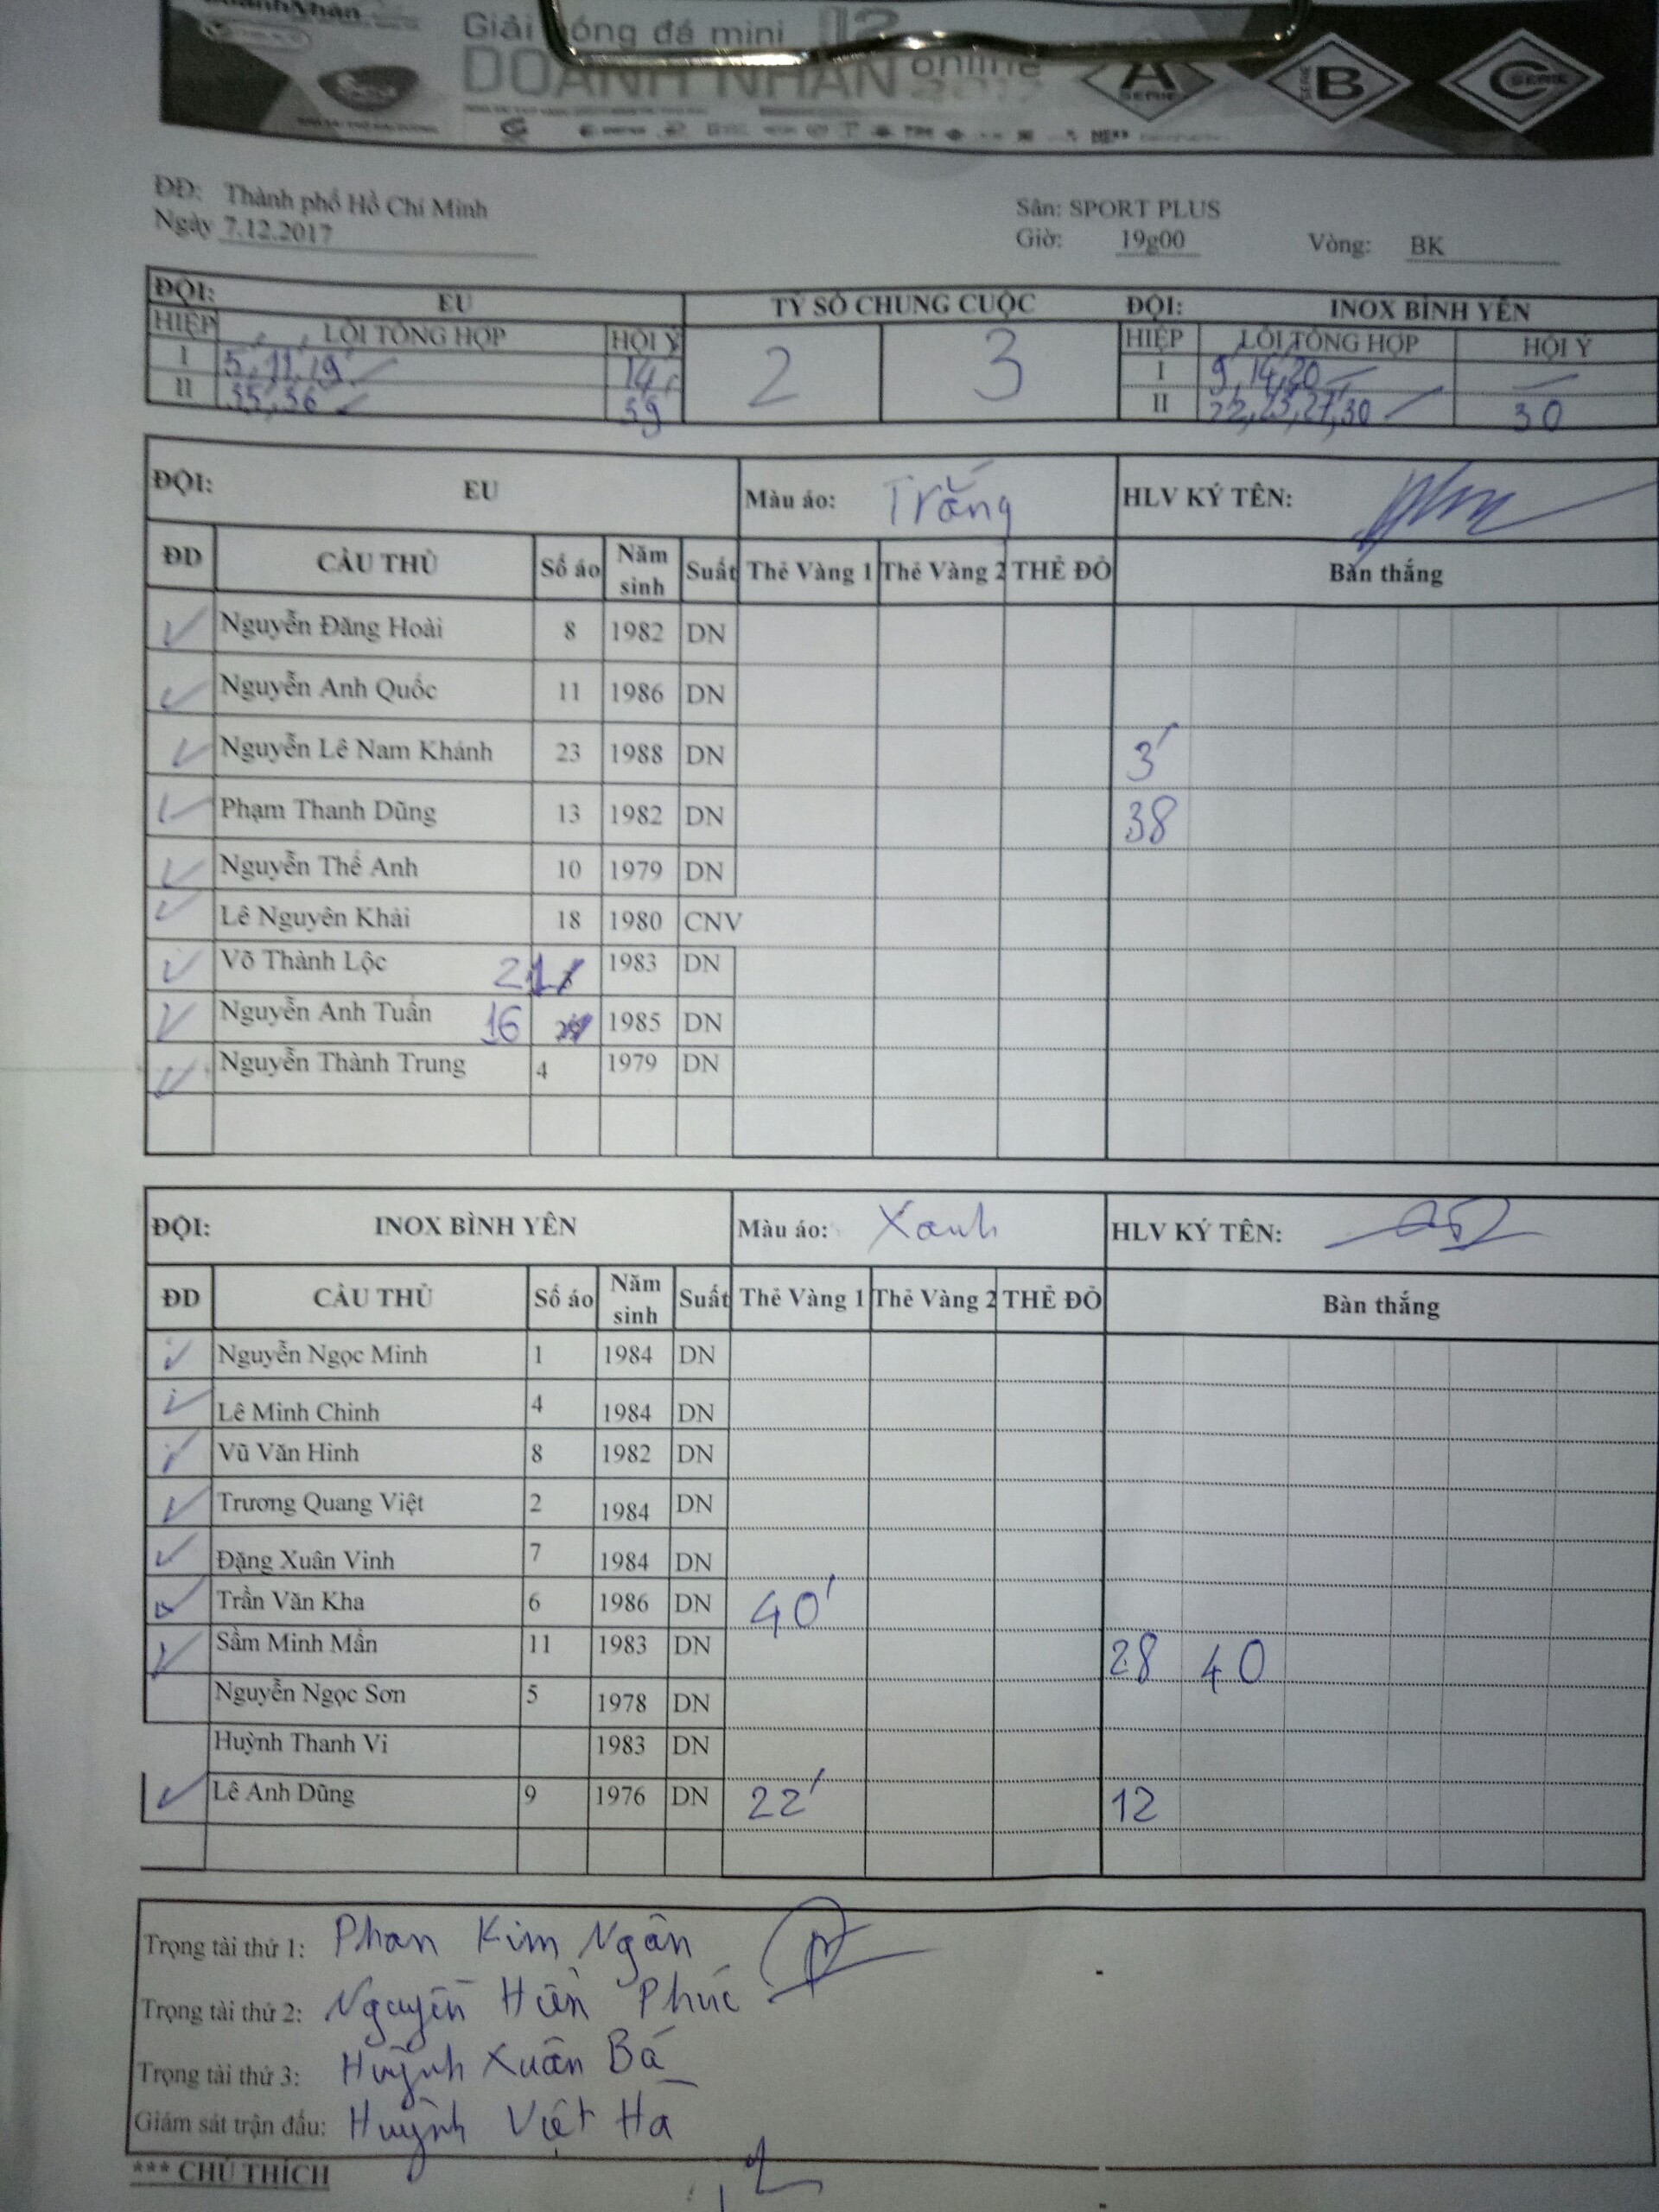 Giải bóng đá mini 12
DOANH NHÂN online
A SERIE B SERIE C SERIE
ĐĐ: Thành phố Hồ Chí Minh Sân: SPORT PLUS
Ngày 7.12.2017 Giờ: 19g00 Vòng: BK
ĐỘI: EU TỶ SỐ CHUNG CUỘC ĐỘI: INOX BÌNH YÊN
HIỆP LỖI TỔNG HỢP HỘI Ý 2 3 HIỆP LỖI TỔNG HỢP HỘI Ý
I 5, 11, 19 14 I 9, 14, 20
II 35, 36 39 II 22, 23, 27, 30 30
ĐỘI: EU Màu áo: Trắng HLV KÝ TÊN:
ĐD CẦU THỦ Số áo Năm sinh Suất Thẻ Vàng 1 Thẻ Vàng 2 THẺ ĐỎ Bàn thắng
Nguyễn Đăng Hoài 8 1982 DN
Nguyễn Anh Quốc 11 1986 DN
Nguyễn Lê Nam Khánh 23 1988 DN 3'
Phạm Thanh Dũng 13 1982 DN 38
Nguyễn Thế Anh 10 1979 DN
Lê Nguyên Khải 18 1980 CNV
Võ Thành Lộc 21 1983 DN
Nguyễn Anh Tuấn 16 1985 DN
Nguyễn Thành Trung 4 1979 DN
ĐỘI: INOX BÌNH YÊN Màu áo: Xanh HLV KÝ TÊN:
ĐD CẦU THỦ Số áo Năm sinh Suất Thẻ Vàng 1 Thẻ Vàng 2 THẺ ĐỎ Bàn thắng
Nguyễn Ngọc Minh 1 1984 DN
Lê Minh Chinh 4 1984 DN
Vũ Văn Hinh 8 1982 DN
Trương Quang Việt 2 1984 DN
Đặng Xuân Vinh 7 1984 DN
Trần Văn Kha 6 1986 DN 40'
Sầm Minh Mẫn 11 1983 DN 28 40
Nguyễn Ngọc Sơn 5 1978 DN
Huỳnh Thanh Vi 1983 DN
Lê Anh Dũng 9 1976 DN 22' 12
Trọng tài thứ 1: Phan Kim Ngân
Trọng tài thứ 2: Nguyễn Hiền Phúc
Trọng tài thứ 3: Huỳnh Xuân Bá
Giám sát trận đấu: Huỳnh Việt Hà
*** CHÚ THÍCH